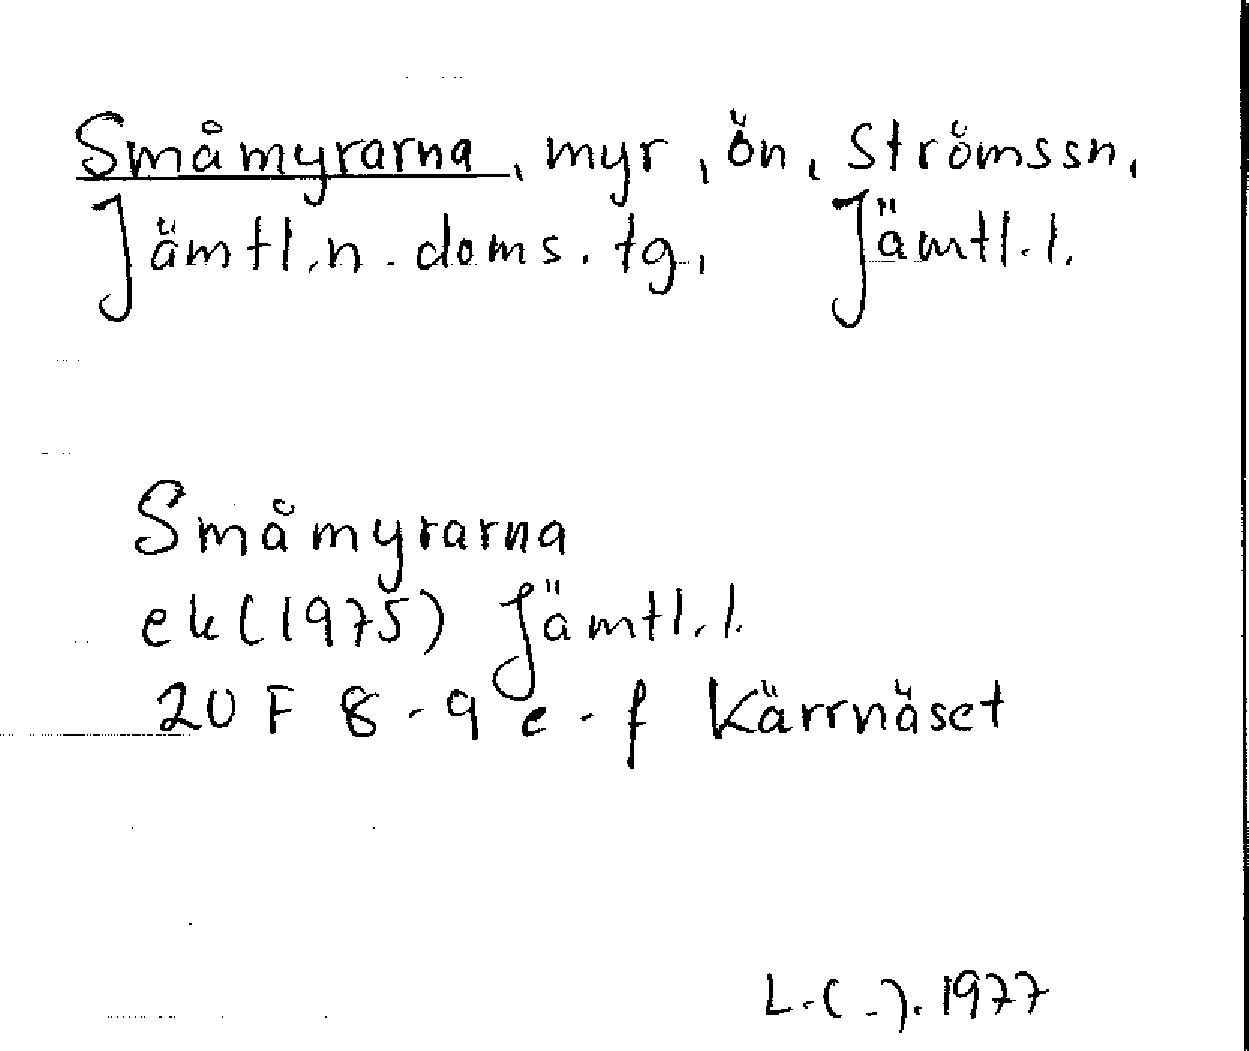 Småmyrarna, myr, ön, Strömssn,
Jämtl.n. doms. tg, Jämtl.l.
Småmyrarna
ek (1975) Jämtl.l.
20 F 8-9 e-f Kärrnäset
L.(-). 1977